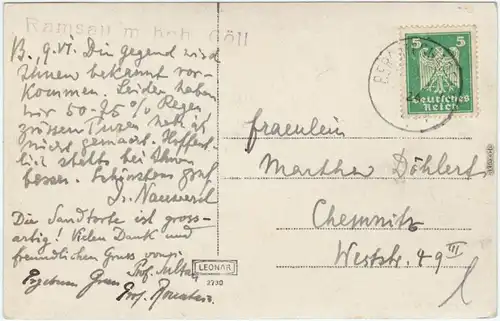 Ramsau m. hoh. Göll
B., 9.VI. Die Gegend wird
Ihnen bekannt vor-
kommen. Leider haben
wir 50-75% Regen
grössere Turen
nicht gemacht. Hoffent-
lich steht's bei Ihnen
besser. Schönsten Gruß
Die Sandtorte ist gross-
artig! Vielen Dank und
freundlichen Gruss von
Prof.
Prof.
LEONAR
2700
5 5
Deutsches
Reich
Fraeulein
Martha Döhlert
Chemnitz
Weststr. 49 III